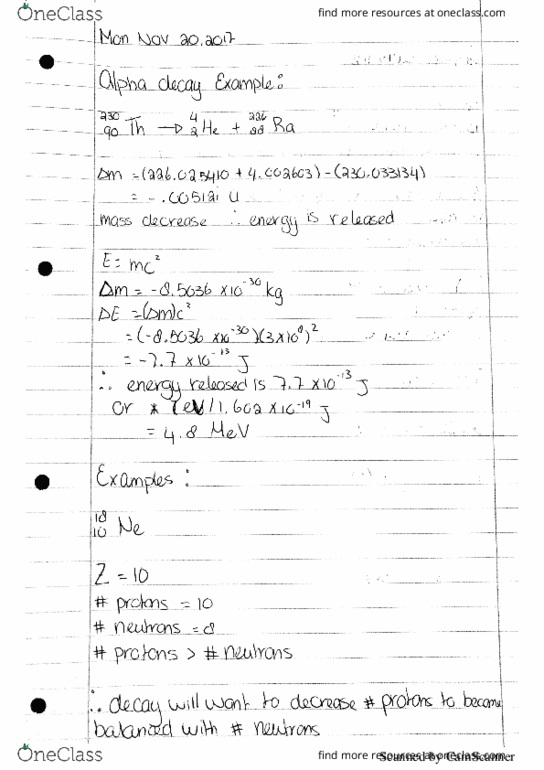 OneClass
find more resources at oneclass.com
Mon Nov 20, 2017
Alpha decay Example:
²³⁰₉₀Th → ⁴₂He + ²²⁶₈₈Ra
Δm = (226.025410 + 4.002603) - (230.033134)
= -.005121 u
mass decrease ∴ energy is released
E = mc²
Δm = -8.5036 x10⁻³⁰ kg
ΔE = (Δm)c²
= (-8.5036 x10⁻³⁰)(3x10⁸)²
= -7.7 x10⁻¹³ J
∴ energy released is 7.7 x10⁻¹³ J
or * 1eV/1.602 x10⁻¹⁹ J
= 4.8 MeV
Examples:
¹⁸₁₀Ne
Z = 10
# protons = 10
# neutrons = 8
# protons > # neutrons
∴ decay will want to decrease # protons to become
balanced with # neutrons
OneClass
find more resources at oneclass.com
Scanned by CamScanner